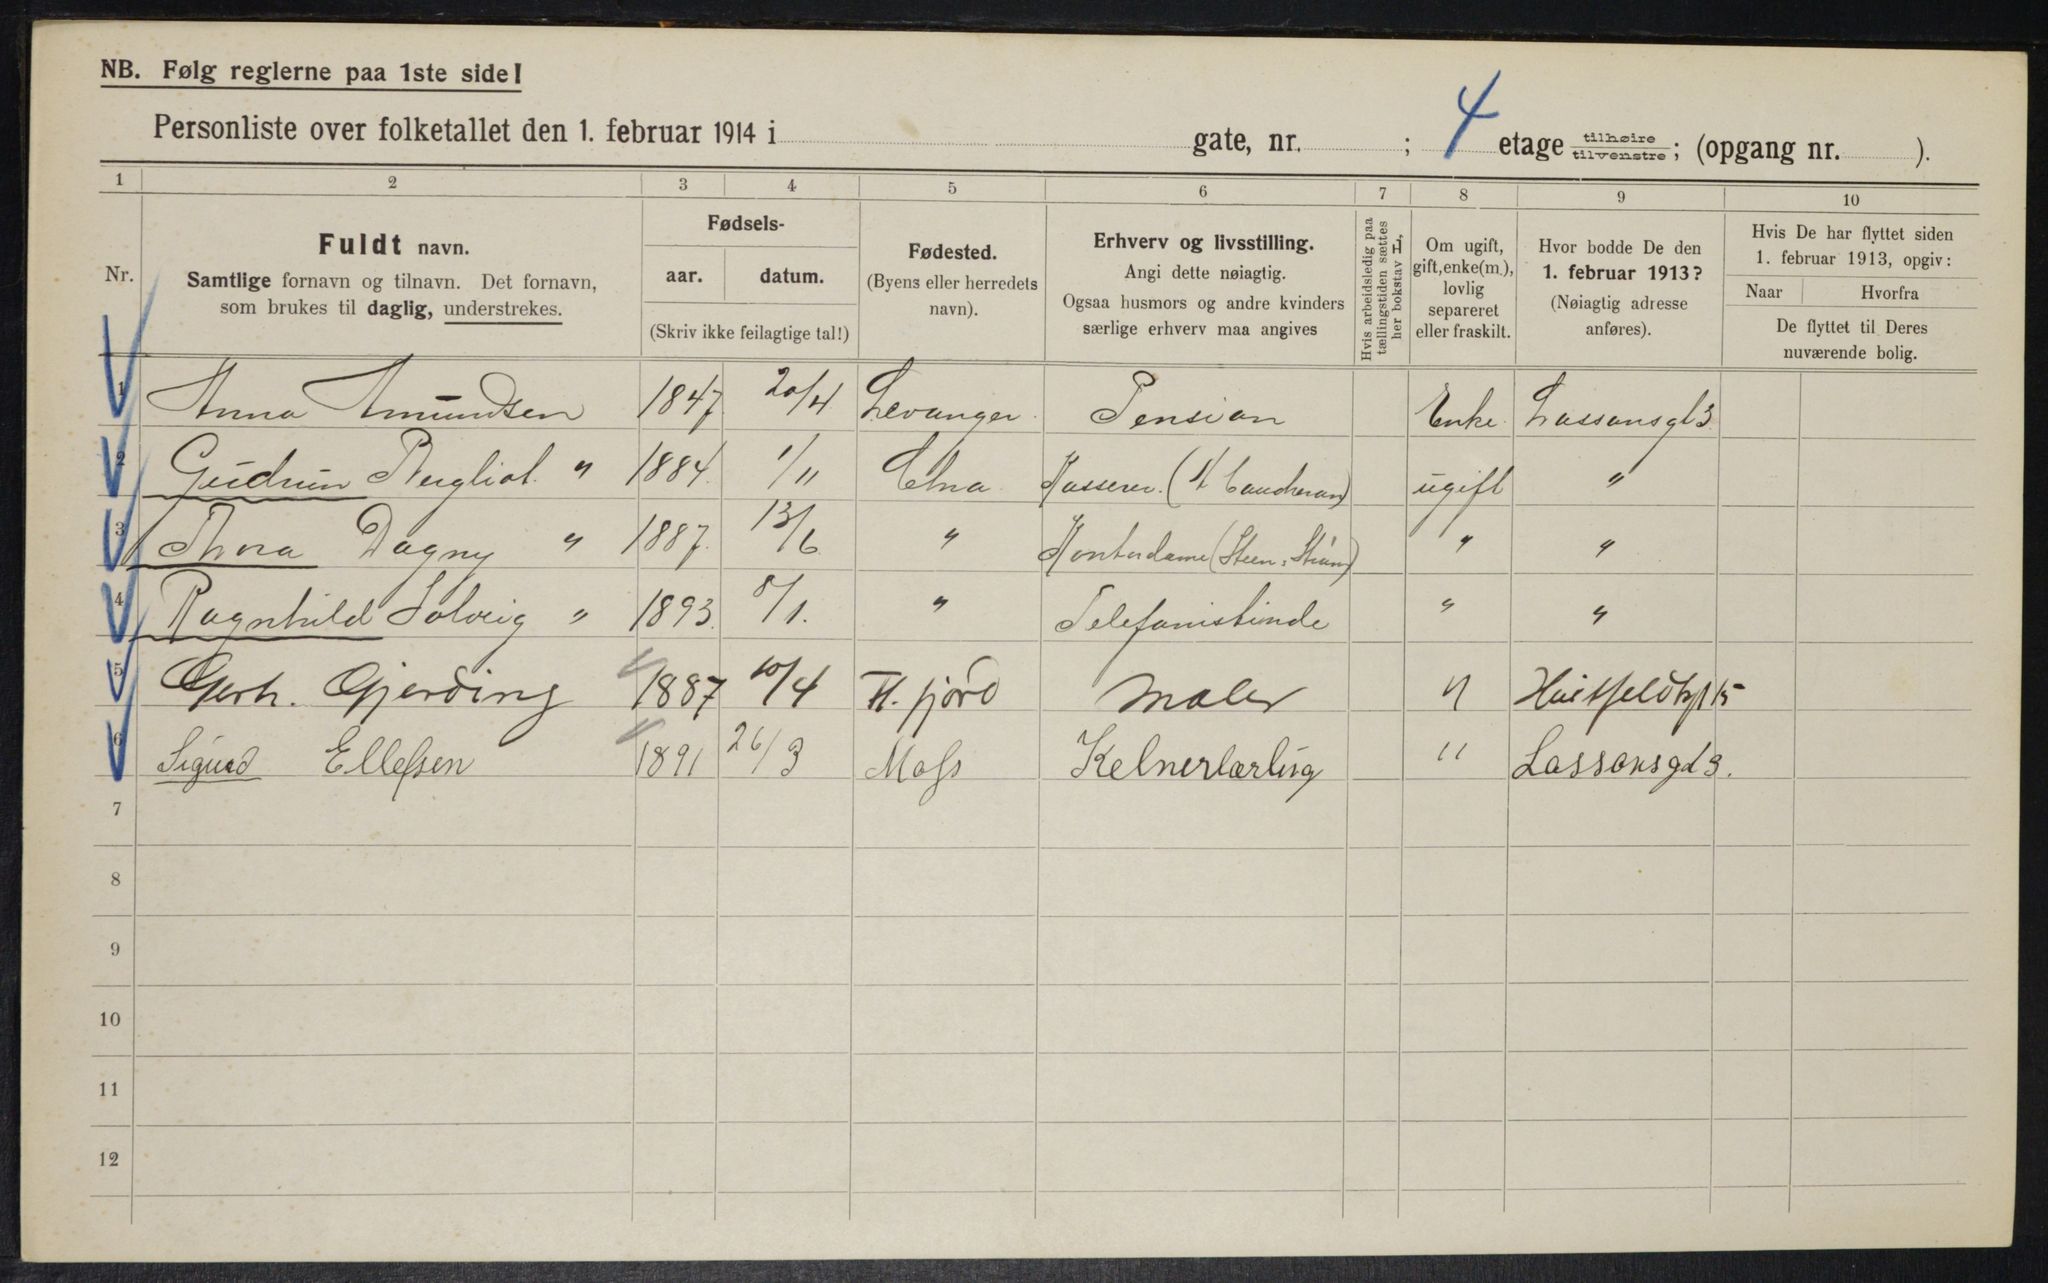 NB. Følg reglerne paa 1ste side!
Personliste over folketallet den 1. februar 1914 i gate, nr. ; 4 etage tilhøire tilvenstre; (opgang nr. ).
1 2 3 4 5 6 7 8 9 10
Nr.
Fuldt navn.
Samtlige fornavn og tilnavn. Det fornavn,
som brukes til daglig, understrekes.
Fødsels-
aar. datum.
(Skriv ikke feilagtige tal!)
Fødested.
(Byens eller herredets
navn).
Erhverv og livsstilling.
Angi dette nøiagtig.
Ogsaa husmors og andre kvinders
særlige erhverv maa angives
Hvis arbeidsledig paa
tællingstiden sættes
her bokstav L,
Om ugift,
gift, enke(m.),
lovlig
separeret
eller fraskilt.
Hvor bodde De den
1. februar 1913?
(Nøiagtig adresse
anføres).
Hvis De har flyttet siden
1. februar 1913, opgiv:
Naar Hvorfra
De flyttet til Deres
nuværende bolig.
1 Anna Amundsen 1847 20/4 Levanger Pension Enke Lassonsgt 3
2 Gudrun Bergliot " 1884 1/11 Chra Kasserer ugift "
3 Thora Dagny " 1887. 13/6 " Kontordame (Steen & Strøm) " "
4 Ragnhild Solveig " 1893. 8/1. " Telefonistinde " "
5 Gerh. Gjerding 1887 10/4 H. fjord Maler " Huitfeldtsgt 15
6 Sigurd Ellefsen 1891 26/3 Moss Kelnerlærling " Lassonsgd 3.
7
8
9
10
11
12